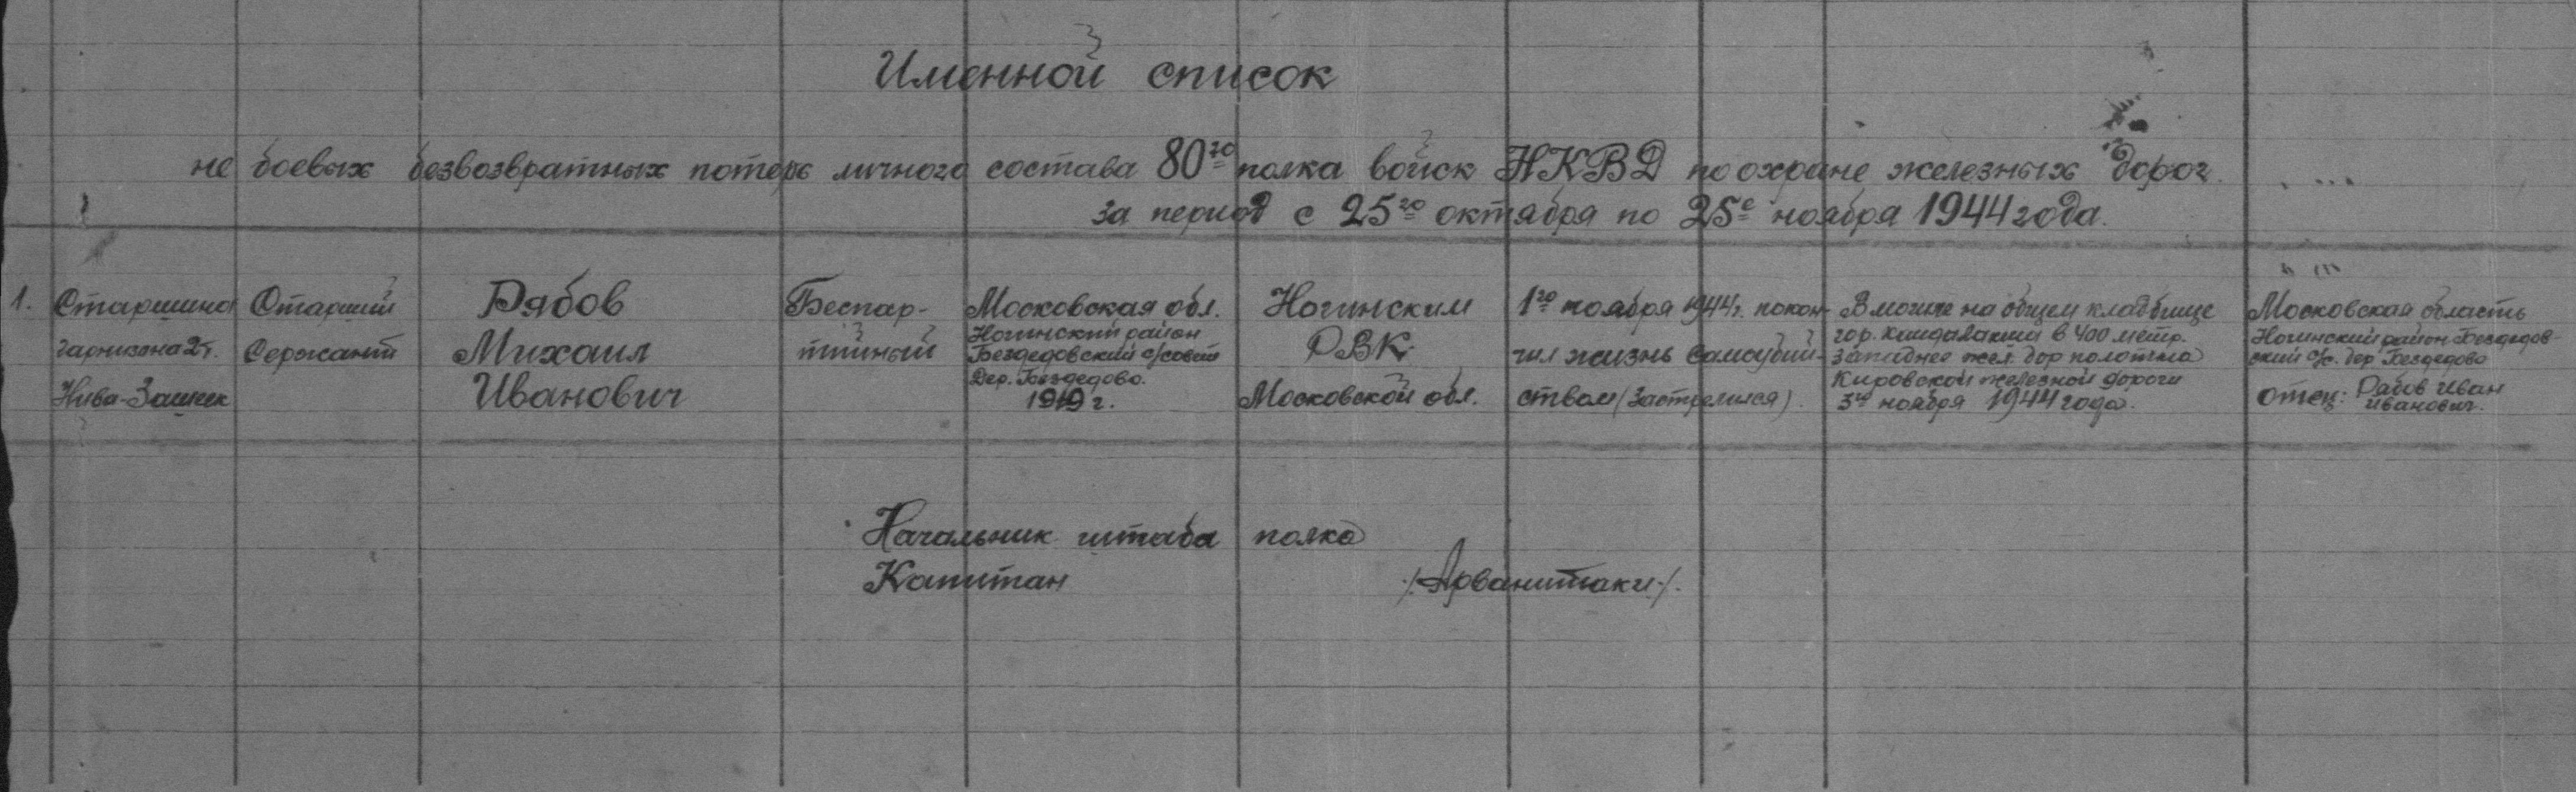 Именной список
не боевых безвозвратных потерь личного состава 80го полка войск НКВД по охране железных дорог.
за период с 25го октября по 25е ноября 1944 года.
1. Старшина гарнизона 2т. Нива-Зашеек
Старший Сержант
Рябов Михаил Иванович
Беспар-
тийный
Московская обл.
Ногинский район
Бездедовский с/совет
Дер. Бездедово.
1919 г.
Ногинским
РВК
Московской обл.
1го ноября 1944г. покон-
чил жизнь самоубий-
ством (Застрелился).
В могиле на общем кладбище
гор. Кандалакши в 400 метр.
западнее жел. дор полотна
Кировской железной дороги
3го ноября 1944 года.
Московская область
Ногинский район Бездедов-
ский с/с. дер. Бездедово
отец: Рабов Иван
Иванович.
Начальник штаба полка
Капитан /.Арванитаки./.